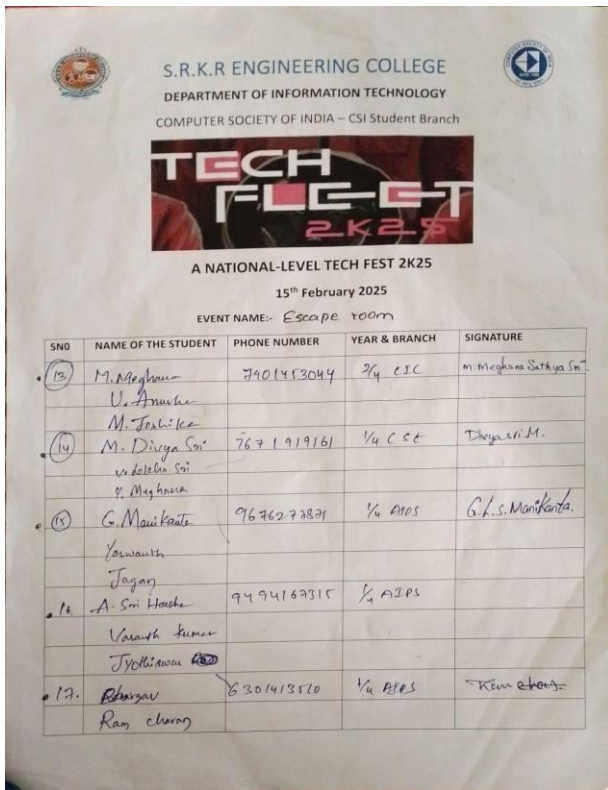 S.R.K.R ENGINEERING COLLEGE
DEPARTMENT OF INFORMATION TECHNOLOGY
COMPUTER SOCIETY OF INDIA – CSI Student Branch
TECH
FLEET
2K25
A NATIONAL-LEVEL TECH FEST 2K25
15th February 2025
EVENT NAME:- Escape room
SNO NAME OF THE STUDENT PHONE NUMBER YEAR & BRANCH SIGNATURE
13 M. Meghana 7401453044 CIC M. Meghana Sathya Sri
U. Anusha
M. Joshika
14 M. Divya Sri 7671919161 1/4 CSE M.
Sri
Y. Meghana
15 G. Manikanta 9676277871 1/4 AIDS G.L.S. Manikanta.
Yaswanth
Jagan
16. A. Sri Harsha 9494167315 AIDS
Vasanth Kumar
17. 6301413510 1/4 AIDS Ram
Ram charan